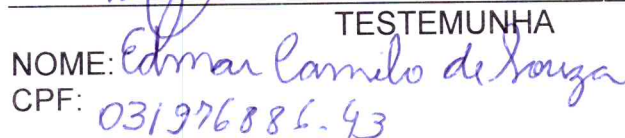 TESTEMUNHA
NOME: Edmar Camilo de Souza
CPF: 031976886-43